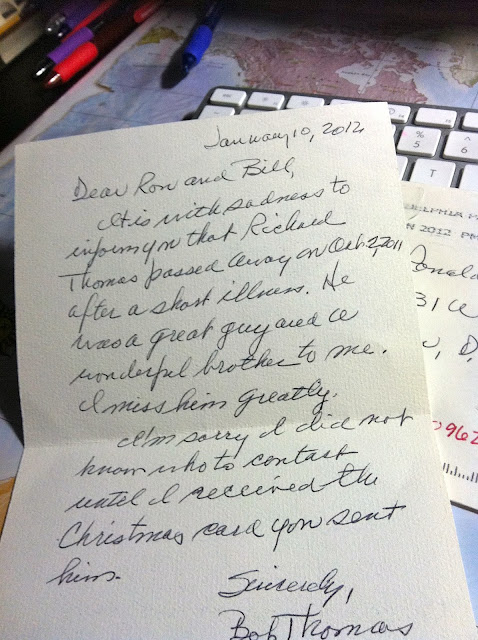 January 10, 2012
Dear Ron and Bill,
It is with sadness to
inform you that Richard
Thomas passed away on Oct. 2, 2011
after a short illness. He
was a great guy and a
wonderful brother to me.
I miss him greatly.
I'm sorry I did not
know who to contact
until I received the
Christmas card you sent
him.
Sincerely,
Bob Thomas
%
5
R
T
DELPHIA P
N 2012 PM
onald
31
0962